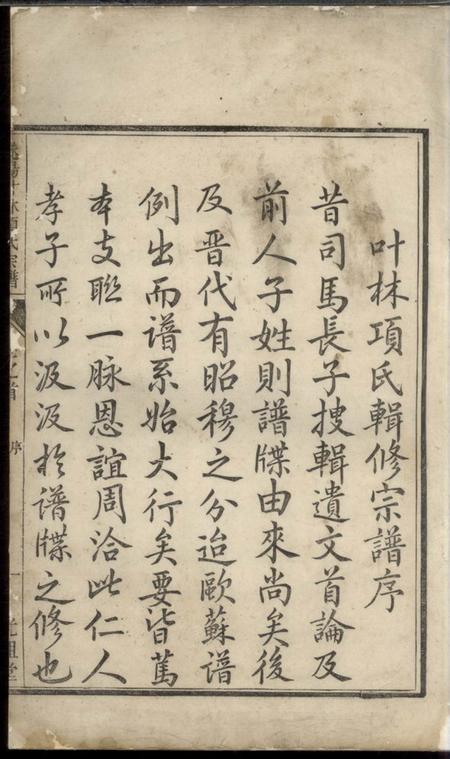 叶林項氏輯修宗譜序
昔司馬長子搜輯遺文首論及
前人子姓則譜牒由來尚矣後
及晋代有昭穆之分迨歐蘇譜
例出而譜系始大行矣要皆篤
本支聯一脉恩誼周洽此仁人
孝子所以汲汲於譜牒之修也
林項氏宗譜
之首
序
一
光祖堂